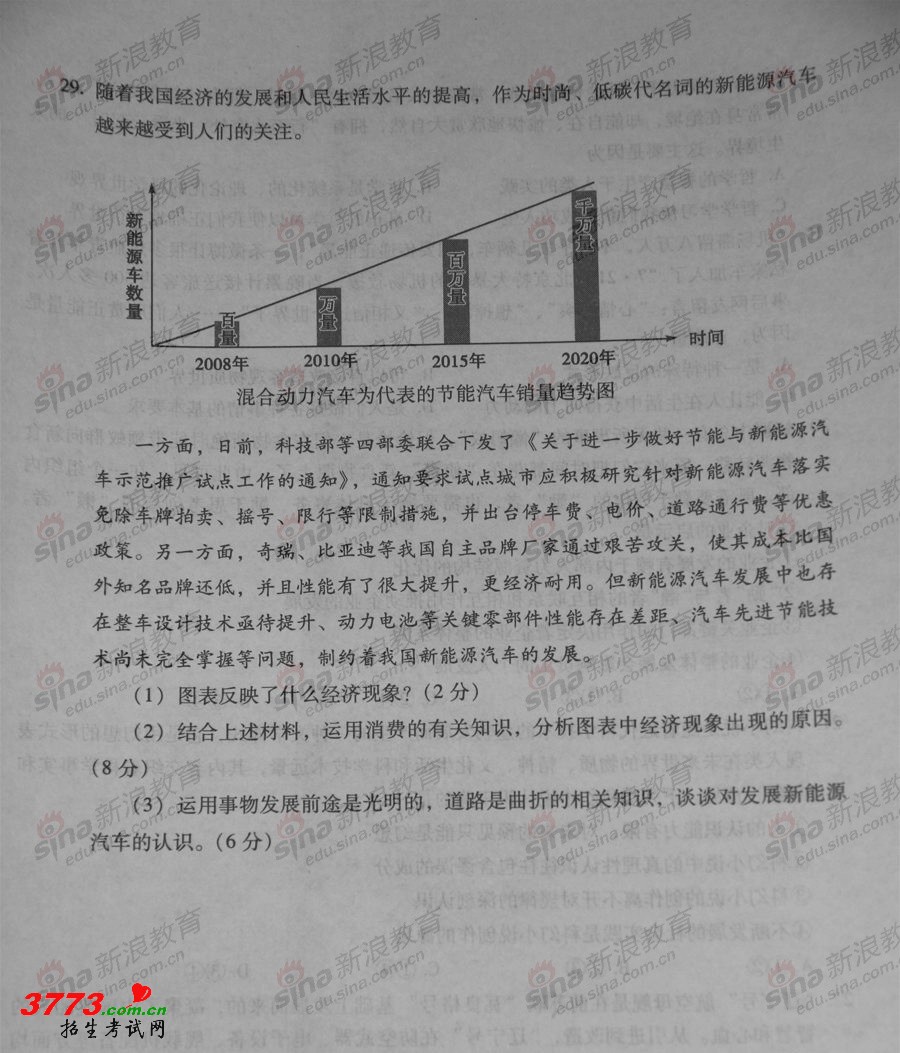 29. 随着我国经济的发展和人民生活水平的提高，作为时尚、低碳代名词的新能源汽车
越来越受到人们的关注。
新能源车数量
百量
万量
百万量
千万量
时间
2008年 2010年 2015年 2020年
混合动力汽车为代表的节能汽车销量趋势图
一方面，日前，科技部等四部委联合下发了《关于进一步做好节能与新能源汽
车示范推广试点工作的通知》，通知要求试点城市应积极研究针对新能源汽车落实
免除车牌拍卖、摇号、限行等限制措施，并出台停车费、电价、道路通行费等优惠
政策。另一方面，奇瑞、比亚迪等我国自主品牌厂家通过艰苦攻关，使其成本比国
外知名品牌还低，并且性能有了很大提升，更经济耐用。但新能源汽车发展中也存
在整车设计技术亟待提升、动力电池等关键零部件性能存在差距、汽车先进节能技
术尚未完全掌握等问题，制约着我国新能源汽车的发展。
（1）图表反映了什么经济现象？（2分）
（2）结合上述材料，运用消费的有关知识，分析图表中经济现象出现的原因。
（8分）
（3）运用事物发展前途是光明的，道路是曲折的相关知识，谈谈对发展新能源
汽车的认识。（6分）
sina新浪教育
edu.sina.com.cn
3773.com.cn
招生考试网